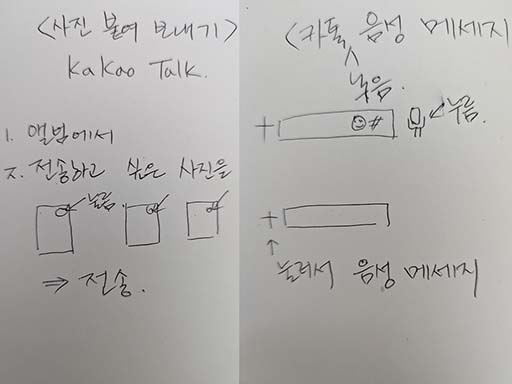 <사진 붙여 보내기>
KaKao Talk.
1. 앨범에서
2. 전송하고 싶은 사진을
눌름.
⇒ 전송.
<카톡 음성 메세지>
녹음.
+ #
누름.
+
↑
눌러서 음성 메세지